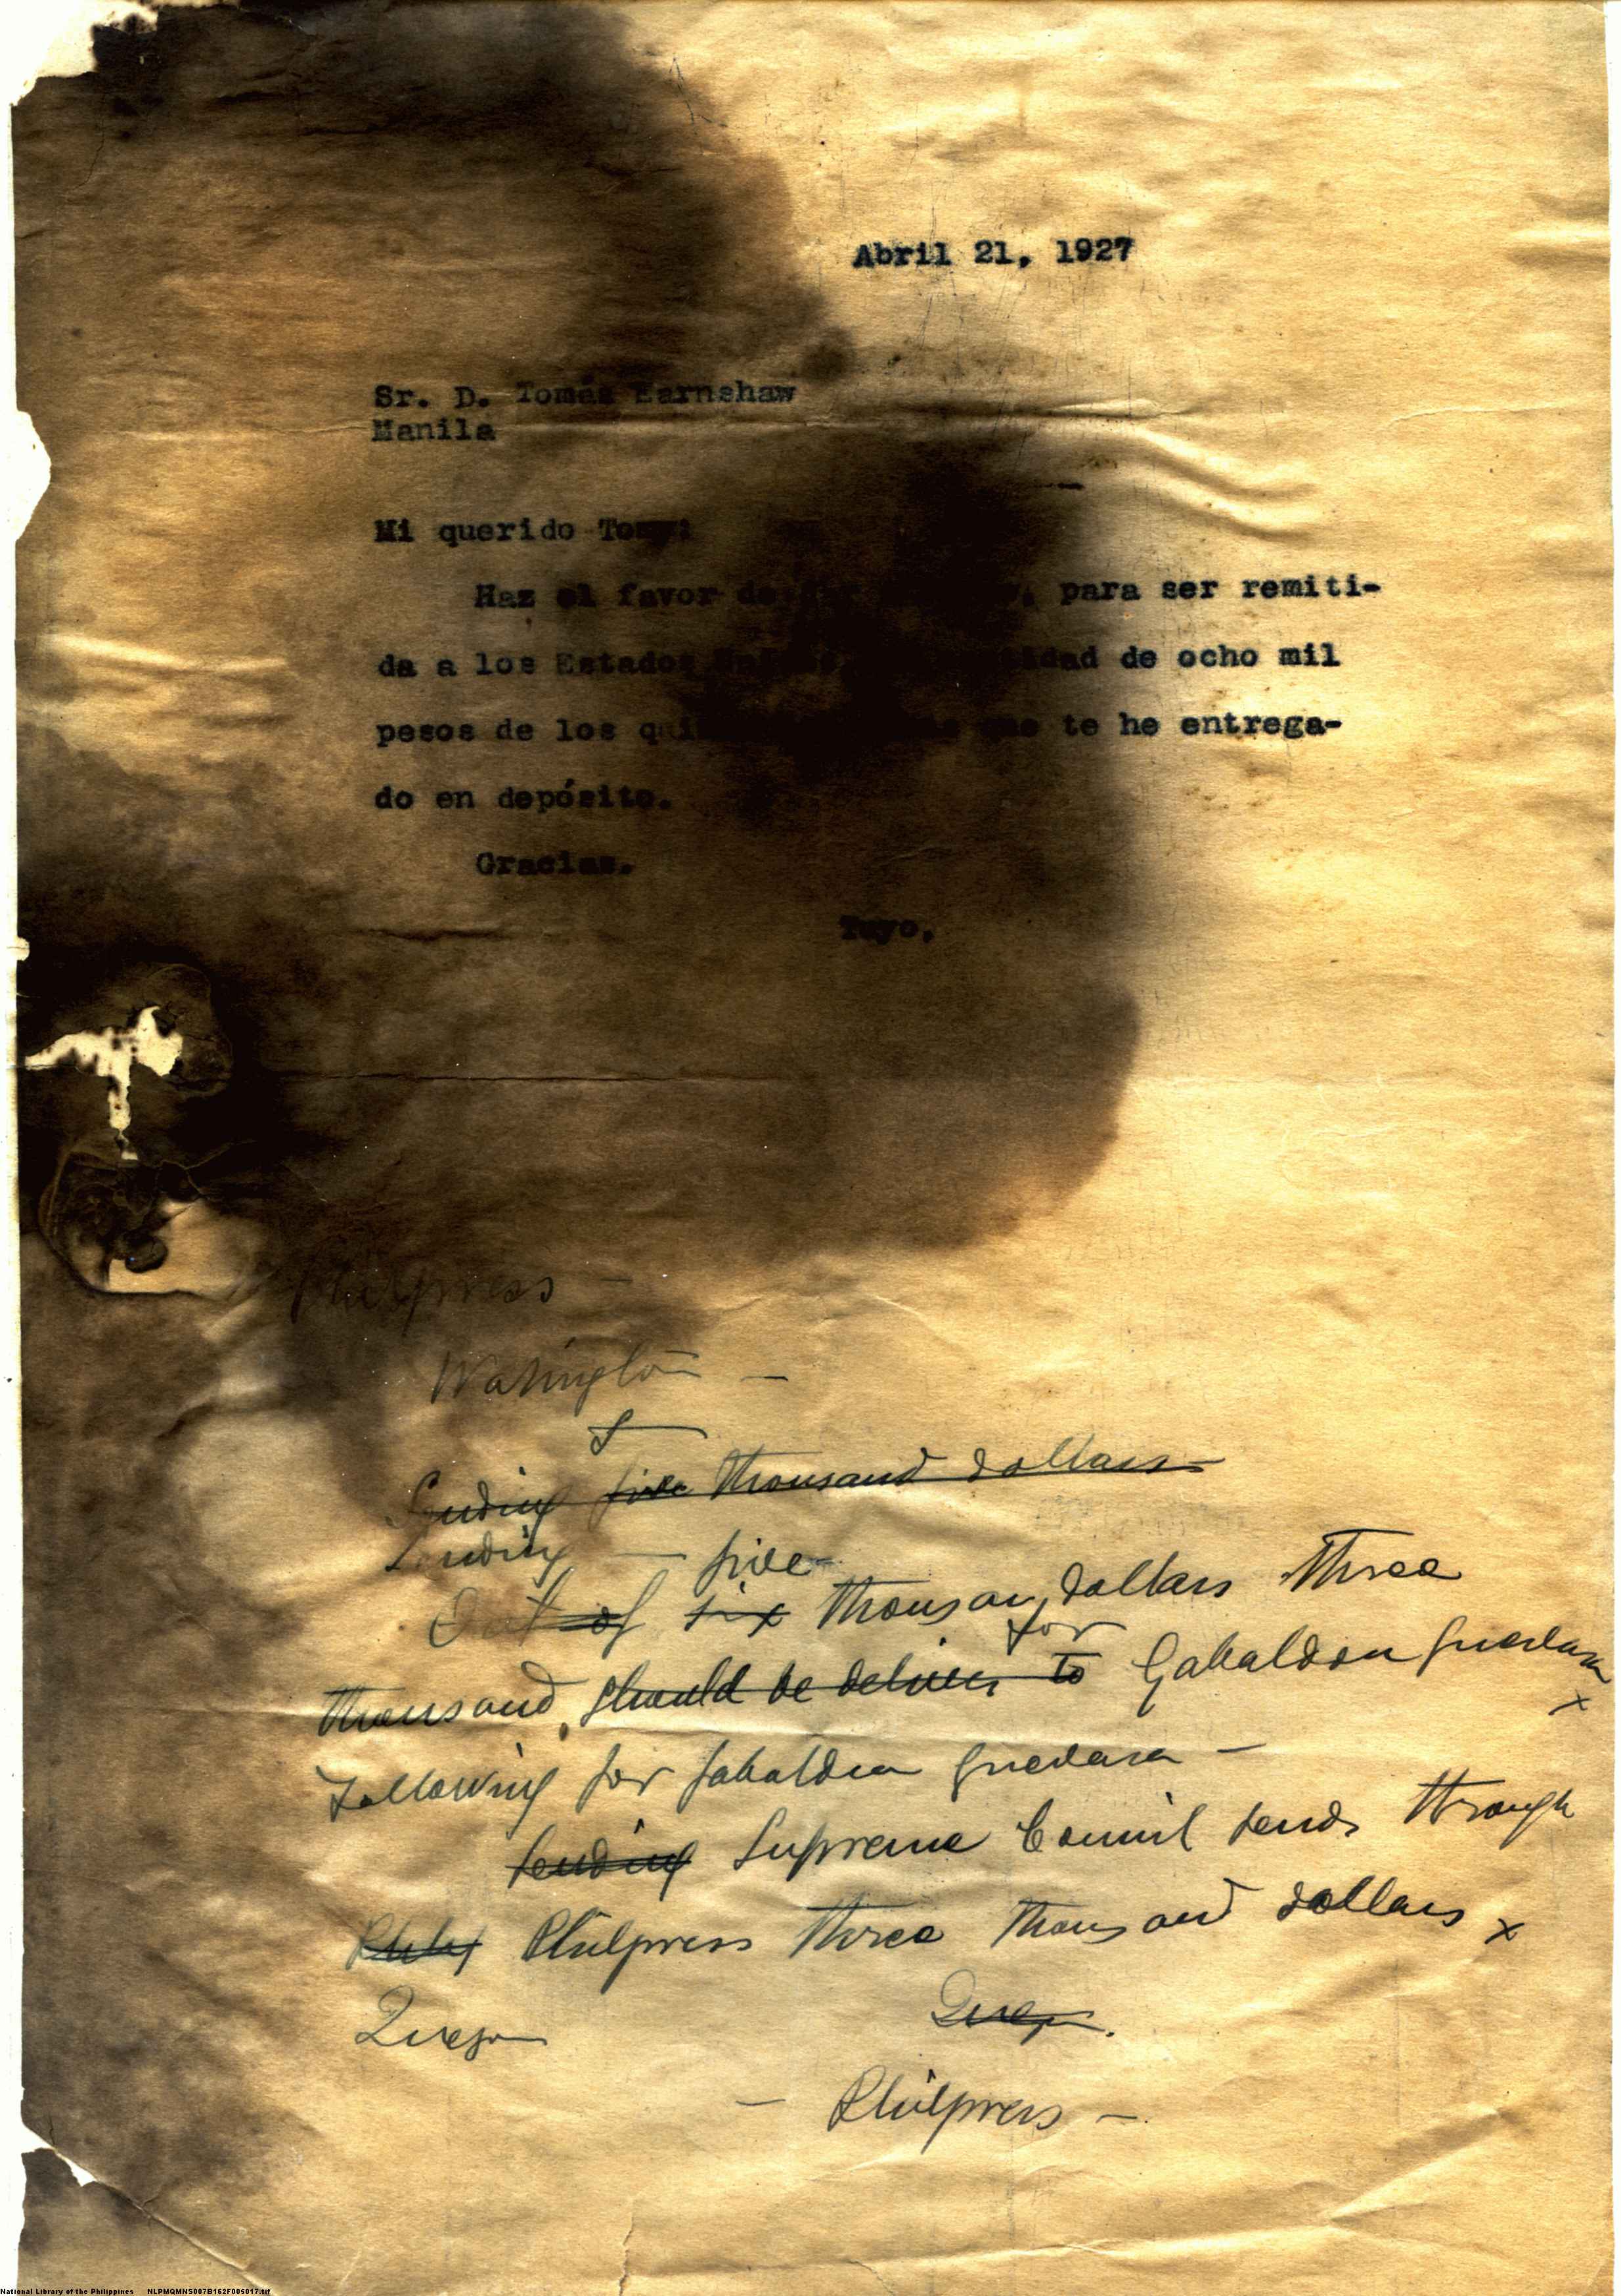 Abril 21, 1927
Sr. D. Tomás Earnshaw
Manila
Mi querido Tomy:
Haz el favor de para ser remiti-
da a los Estados Unidos, de ocho mil
pesos de los que te he entrega-
do en depósito.
Gracias.
Tuyo,
Philpress —
Washington —
Sending five thousand dollars
Sending — five
Out of six thousand dollars three
for
thousand, should be deliver to Gabaldon Guevara x
Following for Gabaldon Guevara —
Sending Supreme Council sends through
Philpress three thousand dollars x
Quezon Quezon.
— Philpress —
National Library of the Philippines NLPMQMNS007B162F005017.tif